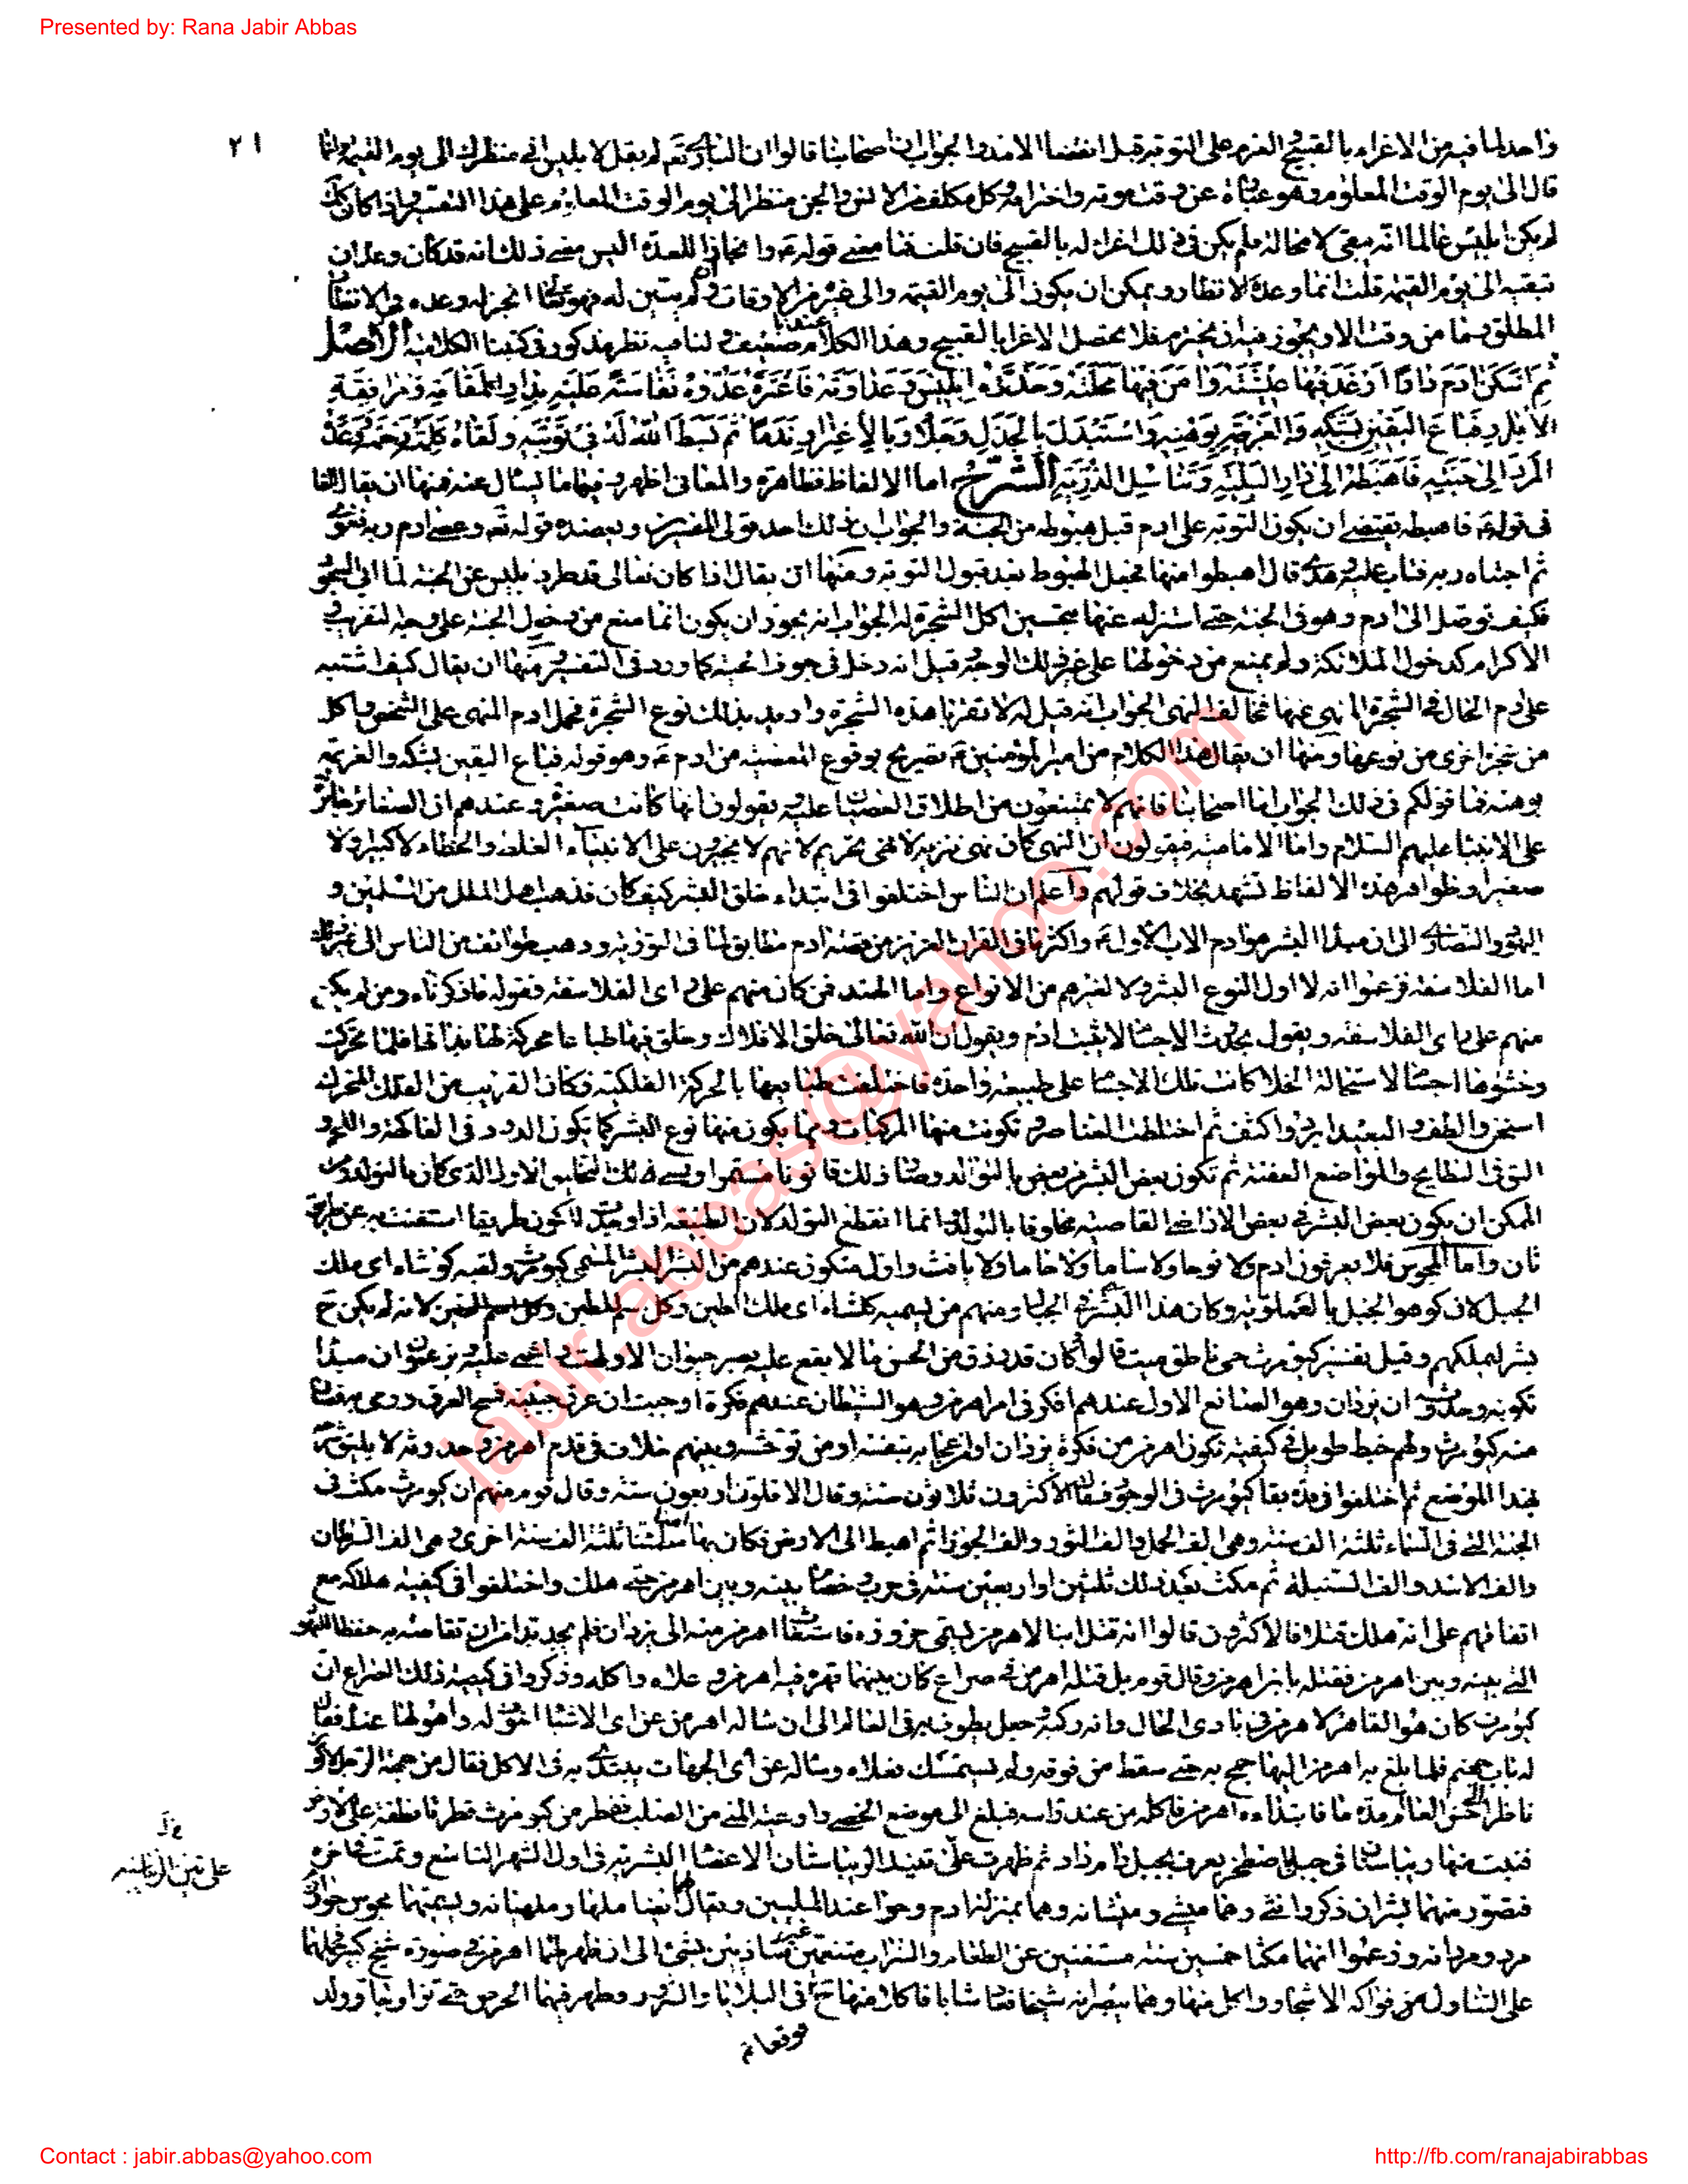 Presented by: Rana Jabir Abbas
٢١
واحد لما فيه من الاغراء بالقبيح او العزم على التوبة قبل انقضاء الامد والجواب ان اصحابنا قالوا ان الباري تعم لم يقل لابليس اني منظرك الى يوم القيمة وانما
قال الى يوم الوقت المعلوم وهو عبارة عن وقت موته واخترامه وكل مكلف من الانس والجن منظر الى يوم الوقت المعلوم على هذا التفسير واذا كان كك
لم يكن ابليس عالما انه يبقى لا محالة فلم يكن في ذلك اغراء له بالقبيح فان قلت فما معنى قوله ع وانجازا للعدة اليس معنى ذلك انه قد كان وعد ان
يبقيه الى يوم القيمة قلت انما وعده الانظار ويمكن ان يكون الى يوم القيمة والى غيره من الاوقات ولم يبين له فهو تعالى انجز له وعده في الانظار
المطلق وما من وقت الا ويجوز فيه ان يخترم فلا يحصل الاغراء بالقبيح وهذا الكلام عندنا ضعيف ولنا فيه نظر مذكور في كتبنا الكلامية الاصل
ثم اسكن ادم دارا ارغد فيها عيشته وامن فيها محلته وحذره ابليس وعداوته فاغتره عدوه نفاسة عليه بدار المقام ومرافقة
الابرار فباع اليقين بشكه والعزيمة بوهنه واستبدل بالجذل وجلا وبالاغترار ندما ثم بسط الله له في توبته ولقاه كلمة رحمته ووعده
المرد الى جنته فاهبطه الى دار البلية وتناسل الذرية الشرح اما الالفاظ فظاهرة والمعاني اظهر وفيها ما يسأل عنه فمنها ان يقال الفاء
في قوله ع فاهبطه يقتضي ان يكون التوبة على ادم قبل هبوطه من الجنة والجواب ان ذلك احد قولي المفسرين ويعضده قوله تعم وعصى ادم ربه فغوى
ثم اجتباه ربه فتاب عليه وهدى قال اهبطوا منها فجعل الهبوط بعد قبول التوبة ومنها ان يقال اذا كان تعالى قد طرد ابليس عن الجنة لما ابى السجود
فكيف توصل الى ادم وهو في الجنة حتى استنزله عنها بتحسين اكل الشجرة له الجواب انه يجوز ان يكون انما منع من دخول الجنة على وجه التقريب
الاكرام كدخول الملائكة ولم يمنع من دخولها على غير ذلك الوجه وقيل انه دخل في جوف الحية كما ورد في التفسير ومنها ان يقال كيف اشتبه
على ادم الحال في الشجرة المنهي عنها فخالف النهي الجواب انه قيل له لا تقربا هذه الشجرة واريد بذلك نوع الشجرة فحمل ادم النهي على الشخص واكل
من شجرة اخرى من نوعها ومنها ان يقال هذا الكلام من امير المؤمنين ع تصريح بوقوع المعصية من ادم ع وهو قوله فباع اليقين بشكه والعزيمة
بوهنه فما قولكم في ذلك الجواب اما اصحابنا فانهم لا يمتنعون من اطلاق العصيان عليه ويقولون انها كانت صغيرة وعندهم ان الصغائر جائزة
على الانبياء عليهم السلام واما الامامية فيقولون ان النهي كان نهي تنزيه لا نهي تحريم لانهم لا يجيزون على الانبياء الغلط والخطاء لا كبيرا ولا
صغيرا وظواهر هذه الالفاظ تشهد بخلاف قولهم واعلم ان الناس اختلفوا في ابتداء خلق البشر كيف كان فذهب اهل الملل من المسلمين و
اليهود والنصارى الى ان مبدأ البشر هو ادم الاب الاول ع واكثر ما في القران العزيز من قصة ادم مطابق لما في التورية وذهب طوائف من الناس الى غير ذلك
اما الفلاسفة فزعموا انه لا اول لنوع البشر ولا لغيرهم من الانواع واما الهند فمن كان منهم على راى الفلاسفة فقوله ما ذكرناه ومن لم يكن
منهم على راى الفلاسفة ويقول بحدوث الاجسام لا يثبت ادم ويقول ان الله تعالى خلق الافلاك وخلق فيها طباعا محركة لها بذاتها فلما تحركت
وحشوها اجسام لاستحالة الخلا كانت تلك الاجسام على طبيعة واحدة فاختلفت طبايعها بالحركة الفلكية فكان القريب من الفلك المتحرك
اسخن والطف والبعيد ابرد واكثف ثم اختلطت العناصر وتكونت منها المركبات ومما يكون منها نوع البشر كما يكون الدود في الفاكهة واللحم و
البق في البطايح والمواضع العفنة ثم تكون بعض البشر من بعض بالتوالد وصار ذلك قانونا مستمرا ونسى ذلك التخليق الاول الذي كان بالتولد ومن
الممكن ان يكون بعض البشر في بعض الاراضي القاصية مخلوقا بالتولد وانما انقطع التولد لان الطبيعة اذا وجدت للتكون طريقا استغنت به عن طريق
ثان واما المجوس فلا يعرفون ادم ولا نوحا ولا ساما ولا حاما ولا يافث واول متكون عندهم من البشر البشر المسمى كيومرث ولقبه كوشاه اي ملك
الجبل لان كو هو الجبل بالفهلوية وكان هذا البشر في الجبال ومنهم من يسميه كلشاه اي ملك الطين وكل اسم الطين لانه لم يكن ح
بشر ليملكهم وقيل تفسير كيومرث حي ناطق ميت قالوا وكان قد رزق من الحسن ما لا يقع عليه بصر حيوان الا وبهت واغمي عليه ويزعمون ان مبدأ
تكونه وحدوثه ان يزدان وهو الصانع الاول عندهم افكر في امر اهرمن وهو الشيطان عندهم فكرة اوجبت ان عرق جبينه فمسح العرق ورمى به فصار
منه كيومرث ولهم خبط طويل في كيفية تكون اهرمن من فكرة يزدان او من اعجابه بنفسه او من توحشه وبينهم خلاف في قدم اهرمن وحدوثه لا يليق شرحه
بهذا الموضع ثم اختلفوا في مدة بقاء كيومرث في الوجود فقال الاكثرون ثلاثون سنة وقال الاقلون اربعون سنة وقال قوم منهم ان كيومرث مكث في
الجنة التي في السماء ثلثة الف سنة وهي الف الحمل والف الثور والف الجوزا ثم اهبط الى الارض فكان بها امنا مطمئنا ثلثة الف سنة اخرى وهي الف السرطان
والف الاسد والف السنبلة ثم مكث بعد ذلك ثلثين او اربعين سنة في حرب وخصام بينه وبين اهرمن حتى هلك واختلفوا في كيفية هلاكه مع
اتفاقهم على انه هلك قتلا فالاكثرون قالوا انه قتل ابنا لاهرمن يسمى خزوره فاستغاث اهرمن منه الى يزدان فلم يجد بدا من ان يقاصه به حفظا للعهود
التي بينه وبين اهرمن فقتله بابن اهرمن وقال قوم بل قتله اهرمن في صراع كان بينهما قهره فيه اهرمن وعلاه واكله وذكروا في كيفية ذلك الصراع ان
كيومرث كان هو القاهر لاهرمن في بادي الحال وانه ركبه وجعل يطوف به في العالم الى ان سأله اهرمن عن اي الاشياء اخوف له واهولها عنده فقال
له باب جهنم فلما بلغ به اهرمن اليها جمح به حتى سقط من فوقه ولم يستمسك فعلاه وسأله عن اي الجهات يبتدى به في الاكل فقال من جهة الرجل لاكون
ناظرا الى حسن العالم مدة ما فابتدأه اهرمن فاكله من عند رأسه فبلغ الى موضع الخصى واوعية المني من الصلب فقطر من كيومرث قطرتا نطفة على الارض
فنبت منها ريباسان في جبل باصطخر يعرف بجبل دام داد ثم ظهرت على تينك الريباستان الاعضاء البشرية في اول الشهر التاسع وتمت في اخره
فتصور منهما بشران ذكر وانثى وهما ميشى وميشانه وهما بمنزلة ادم وحوا عند المليين ويقال لهما ايضا ملها وملهيانه ويسميهما مجوس خوارزم
مرد ومردانه وزعموا انهما مكثا خمسين سنة مستغنين عن الطعام والشراب متنعمين غير متاذيين بشيء الى ان ظهر لهما اهرمن في صورة شيخ كبير فحملهما
على التناول من فواكه الاشجار واكل منها وهما يبصرانه شيخا فعاد شابا فاكلا منها ح فوقعا في البلايا والشرور وظهر فيهما الحرص حتى تزاوجا وولد
فوقعا
jabir.abbas@yahoo.com
Contact : jabir.abbas@yahoo.com
http://fb.com/ranajabirabbas